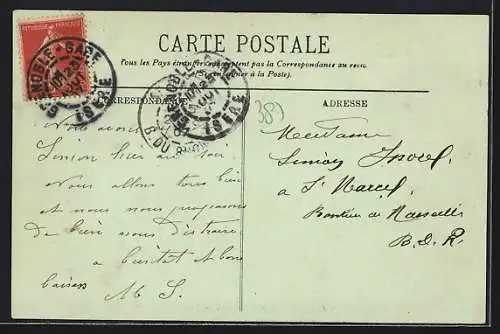 REPUBLIQUE FRANÇAISE
GRENOBLE - GARE
ISERE
CARTE POSTALE
Tous les Pays étrangers n'acceptent pas la Correspondance au recto.
(Se renseigner à la Poste).
CORRESPONDANCE
GRENOBLE GARE
ISERE
ADRESSE
Nous avons
Simon hier au soir
Nous allons tous bien
et nous nous proposons
de bien nous distraire
à bientôt et bons
baisers M S.
Madame
Simon
à St Marcel
Banlieue de Marseille
B. D. R.